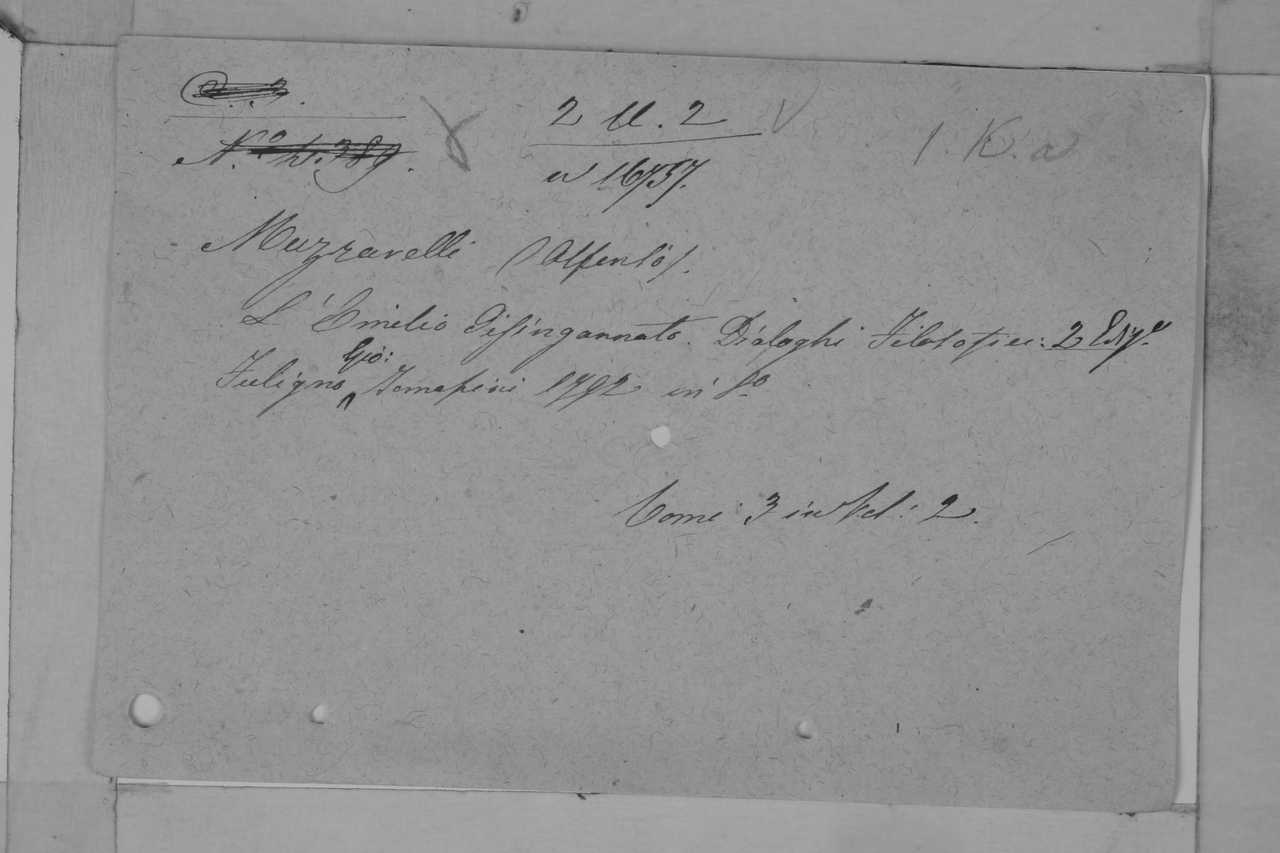 N.º 4.389.
2 U. 2 V
1. K. a
w 16757.
Muzzarelli (Alfonso).
L'Emilio Disingannato. Dialoghi Filosofici. 2 Esyᵉ.
Fuligno Giò: Tomassini 1792 in 8º
Tomi 3 in Vol: 2.